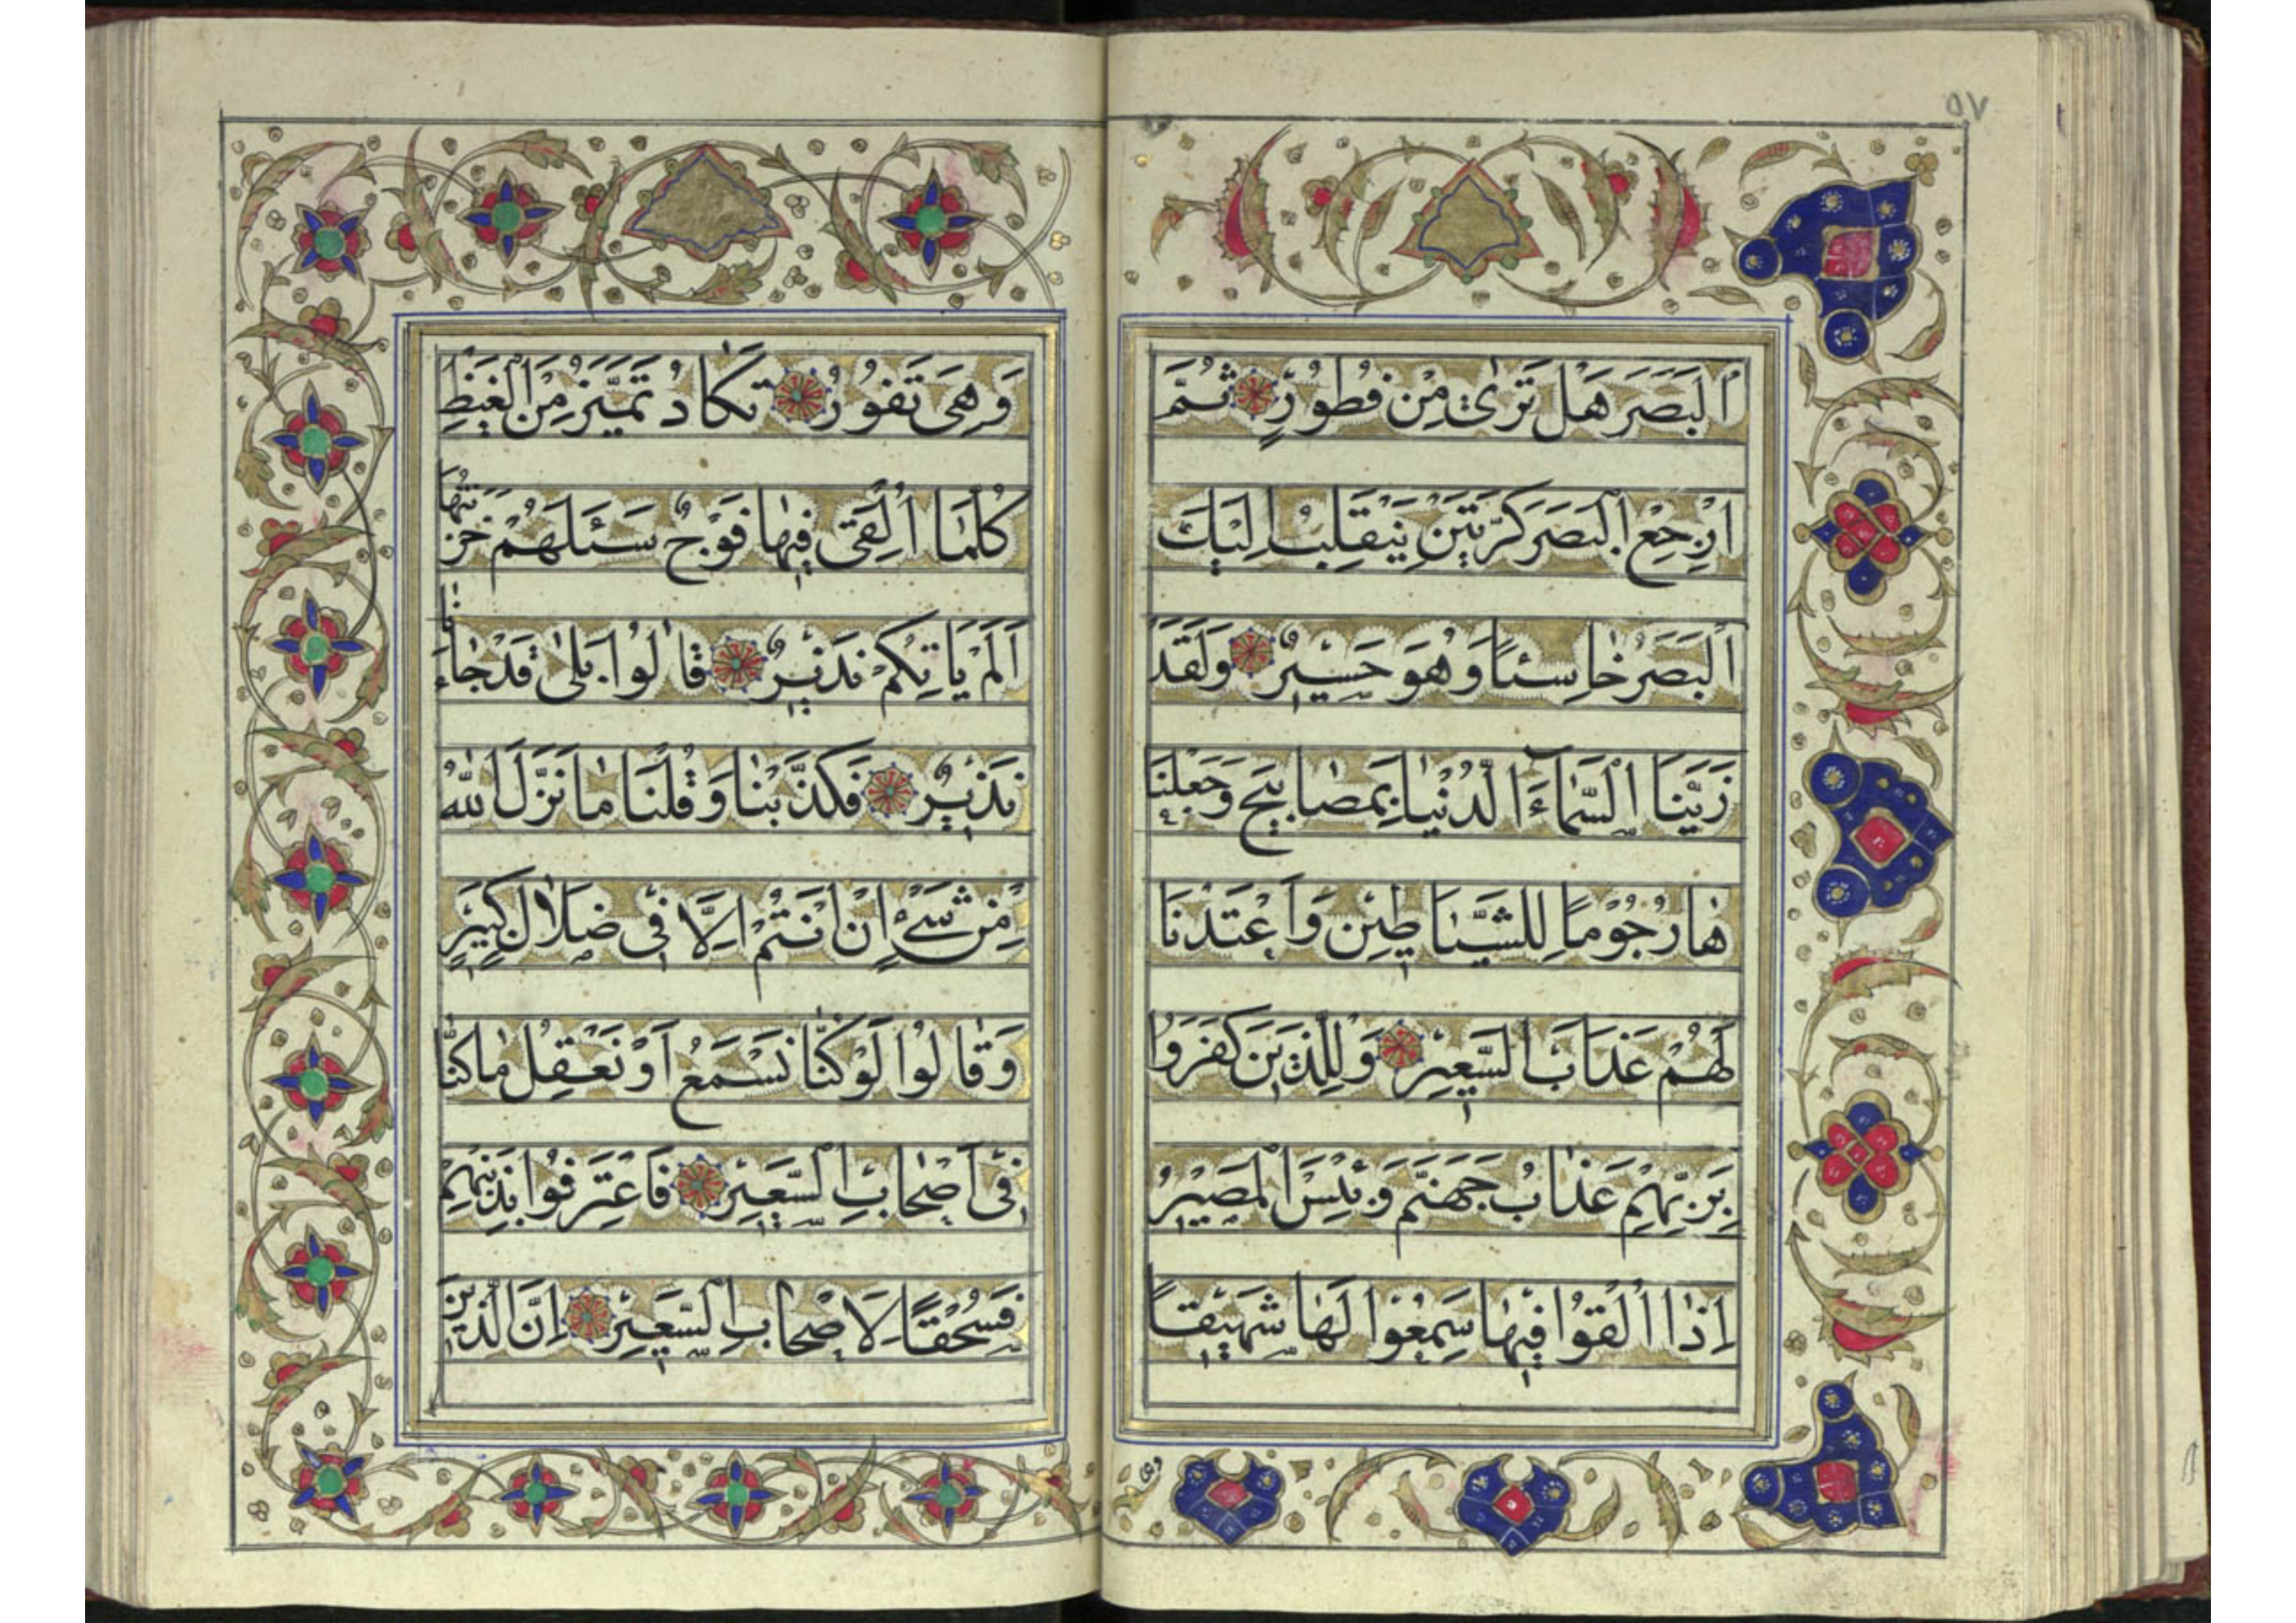 ٥٧
اَلْبَصَرَ هَلْ تَرٰى مِنْ فُطُورٍ ثُمَّ
ارْجِعِ الْبَصَرَ كَرَّتَيْنِ يَنْقَلِبْ اِلَيْكَ
الْبَصَرُ خٰاسِئاً وَهُوَ حَسيرٌ وَلَقَدْ
زَيَّنَا السَّمٰاءَ الدُّنْيٰا بِمَصٰابيحَ وَجَعَلْنٰا
هٰا رُجُوماً لِلشَّيٰاطينِ وَاَعْتَدْنٰا
لَهُمْ عَذٰابَ السَّعيرِ وَلِلَّذينَ كَفَرُوا
بِرَبِّهِمْ عَذٰابُ جَهَنَّمَ وَبِئْسَ الْمَصيرُ
اِذٰا اُلْقُوا فيهٰا سَمِعُوا لَهٰا شَهيقاً
وهى
وَهِىَ تَفُورُ تَكٰادُ تَمَيَّزُ مِنَ الْغَيْظِ
كُلَّمٰا اُلْقِىَ فيهٰا فَوْجٌ سَئَلَهُمْ خَزَنَتُهٰا
اَلَمْ يَاْتِكُمْ نَذيرٌ قٰالُوا بَلىٰ قَدْ جٰاءَنٰا
نَذيرٌ فَكَذَّبْنٰا وَقُلْنٰا مٰا نَزَّلَ اللّٰهُ
مِنْ شَىْءٍ اِنْ اَنْتُمْ اِلَّا فى ضَلٰالٍ كَبيرٍ
وَقٰالُوا لَوْ كُنّٰا نَسْمَعُ اَوْ نَعْقِلُ مٰا كُنّٰا
فى اَصْحٰابِ السَّعيرِ فَاعْتَرَفُوا بِذَنْبِهِمْ
فَسُحْقاً لِاَصْحٰابِ السَّعيرِ اِنَّ الَّذينَ